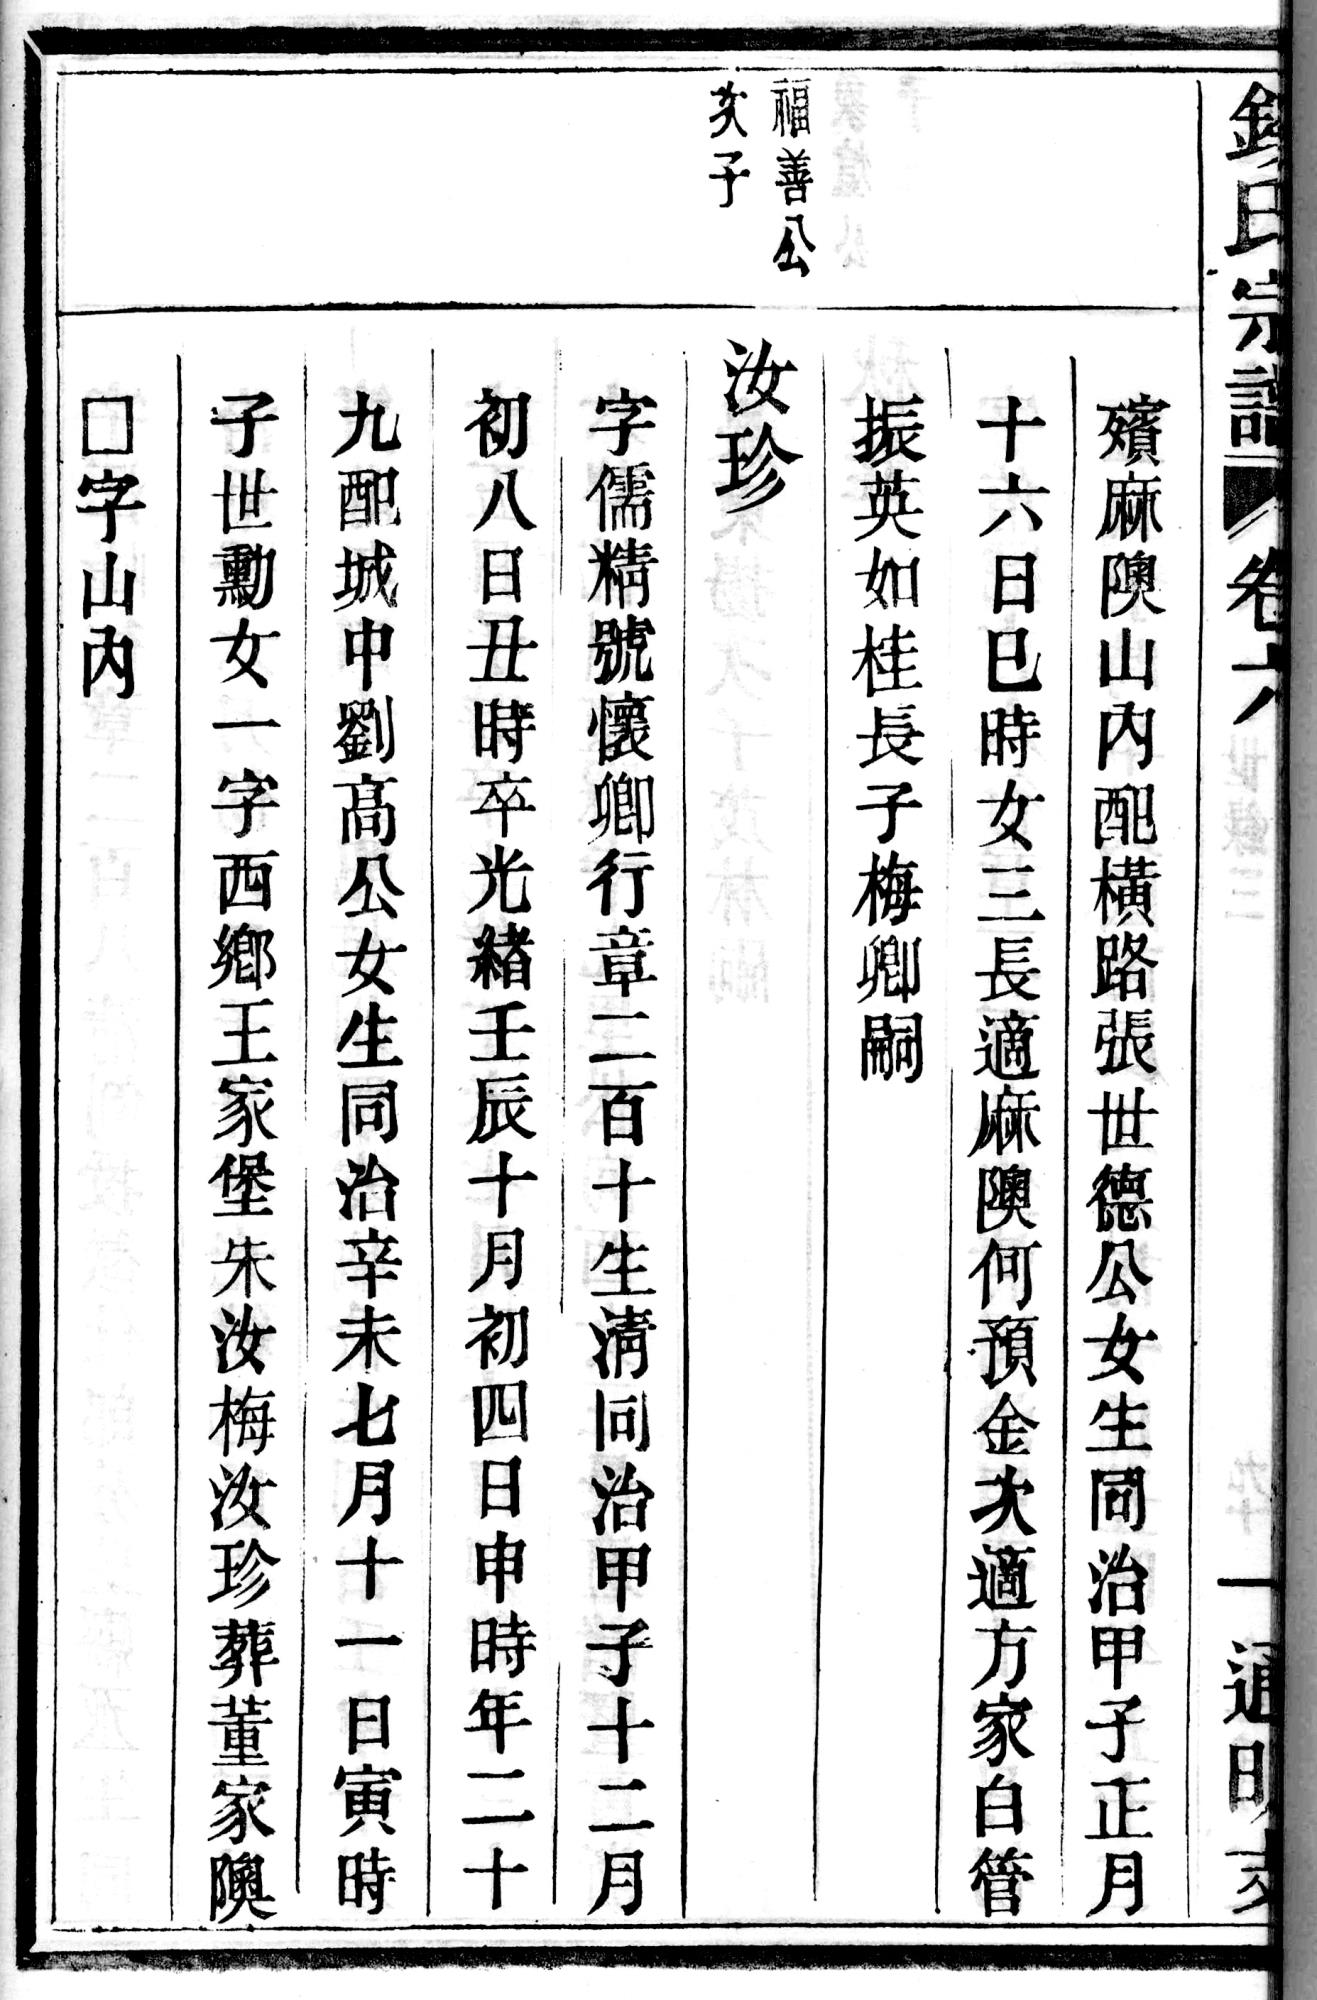 氏宗譜 卷六 一 通明支
殯麻隩山內配橫路張世德公女生同治甲子正月
十六日巳時女三長適麻隩何預金次適方家白管
振英如桂長子梅卿嗣
福善公
次子
汝珍
字儒精號懷卿行章二百十生淸同治甲子十二月
初八日丑時卒光緖壬辰十月初四日申時年二十
九配城中劉高公女生同治辛未七月十一日寅時
子世勳女一字西鄉王家堡朱汝梅汝珍葬董家隩
□字山內